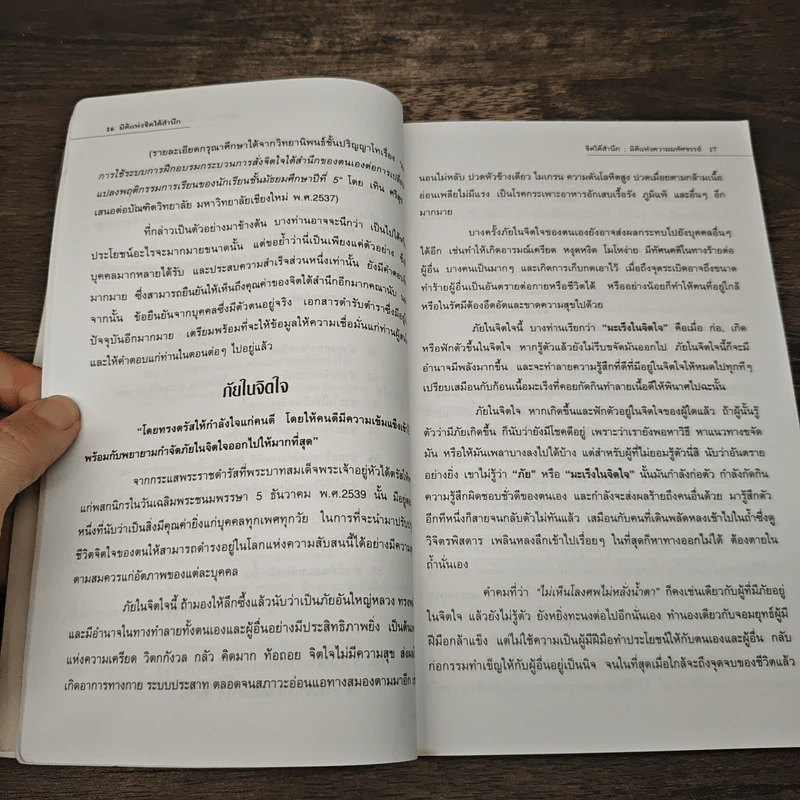 16 มิติแห่งจิตใต้สำนึก
(รายละเอียดกรุณาศึกษาได้จากวิทยานิพนธ์ชั้นปริญญาโทเรื่อง
การใช้ระบบการฝึกอบรมกระบวนการสั่งจิตใต้สำนึกของตนเองต่อการเปลี่ยน
แปลงพฤติกรรมการเรียนของนักเรียนชั้นมัธยมศึกษาปีที่ 5" โดย เทิน
เสนอต่อบัณฑิตวิทยาลัย มหาวิทยาลัยเชียงใหม่ พ.ศ.2537)
ที่กล่าวเป็นตัวอย่างมาข้างต้น บางท่านอาจจะนึกว่า เป็นไปได้
ประโยชน์อะไรจะมากมายขนาดนั้น แต่ขอย้ำว่านี่เป็นเพียงแค่ตัวอย่าง
บุคคลมากหลายได้รับ และประสบความสำเร็จส่วนหนึ่งเท่านั้น ยังมีคำตอบ
มากมาย ซึ่งสามารถยืนยันให้เห็นถึงคุณค่าของจิตใต้สำนึกอีกมากคณานับ
จากนั้น ข้อยืนยันจากบุคคลซึ่งมีตัวตนอยู่จริง เอกสารตำรับตำราซึ่งมีอยู่
ปัจจุบันอีกมากมาย เตรียมพร้อมที่จะให้ข้อมูลให้ความเชื่อมั่นแก่ท่านผู้
และให้คำตอบแก่ท่านในตอนต่อๆ ไปอยู่แล้ว
ภัยในจิตใจ
"โดยทรงตรัสให้กำลังใจแก่คนดี โดยให้คนดีมีความเข้มแข็ง
พร้อมกับพยายามกำจัดภัยในจิตใจออกไปให้มากที่สุด"
จากกระแสพระราชดำรัสที่พระบาทสมเด็จพระเจ้าอยู่หัวได้ตรัส
แก่พสกนิกรในวันเฉลิมพระชนมพรรษา 5 ธันวาคม พ.ศ.2539 นั้น มีอยู่
หนึ่งที่นับว่าเป็นสิ่งมีคุณค่ายิ่งแก่บุคคลทุกเพศทุกวัย ในการที่จะนำมาปรับ
ชีวิตจิตใจของตนให้สามารถดำรงอยู่ในโลกแห่งความสับสนนี้ได้อย่างมีความ
ตามสมควรแก่อัตภาพของแต่ละบุคคล
ภัยในจิตใจนี้ ถ้ามองให้ลึกซึ้งแล้วนับว่าเป็นภัยอันใหญ่หลวง ทรง
และมีอำนาจในทางทำลายทั้งตนเองและผู้อื่นอย่างมีประสิทธิภาพยิ่ง เป็นต้น
แห่งความเครียด วิตกกังวล กลัว คิดมาก ท้อถอย จิตใจไม่มีความสุข ส่งผล
เกิดอาการทางกาย ระบบประสาท ตลอดจนสภาวะอ่อนแอทางสมองตามมาอีก
จิตใต้สำนึก : มิติแห่งความมหัศจรรย์ 17
นอนไม่หลับ ปวดหัวข้างเดียว ไมเกรน ความดันโลหิตสูง ปวดเมื่อยตามกล้ามเนื้อ
อ่อนเพลียไม่มีแรง เป็นโรคกระเพาะอาหารอักเสบเรื้อรัง ภูมิแพ้ และอื่นๆ อีก
มากมาย
บางครั้งภัยในจิตใจของตนเองยังอาจส่งผลกระทบไปยังบุคคลอื่นๆ
ได้อีก เช่นทำให้เกิดอารมณ์เครียด หงุดหงิด โมโหง่าย มีทัศนคติในทางร้ายต่อ
ผู้อื่น บางคนเป็นมากๆ และเกิดการเก็บกดเอาไว้ เมื่อถึงจุดระเบิดอาจถึงขนาด
ทำร้ายผู้อื่นเป็นอันตรายต่อกายหรือชีวิตได้ หรืออย่างน้อยก็ทำให้คนที่อยู่ใกล้
หรือในรัศมีต้องอึดอัดและขาดความสุขไปด้วย
ภัยในจิตใจนี้ บางท่านเรียกว่า "มะเร็งในจิตใจ" คือเมื่อ ก่อ, เกิด
หรือฟักตัวขึ้นในจิตใจ หากรู้ตัวแล้วยังไม่รีบขจัดมันออกไป ภัยในจิตใจนี้ก็จะมี
อำนาจมีพลังมากขึ้น และจะทำลายความรู้สึกที่ดีที่มีอยู่ในจิตใจให้หมดไปทุกทีๆ
เปรียบเสมือนกับก้อนเนื้อมะเร็งที่คอยกัดกินทำลายเนื้อดีให้พินาศไปฉะนั้น
ภัยในจิตใจ หากเกิดขึ้นและฟักตัวอยู่ในจิตใจของผู้ใดแล้ว ถ้าผู้นั้นรู้
ตัวว่ามีภัยเกิดขึ้น ก็นับว่ายังมีโชคดีอยู่ เพราะว่าเรายังพอหาวิธี หาแนวทางขจัด
มัน หรือให้มันเพลาบางลงไปได้บ้าง แต่สำหรับผู้ที่ไม่ยอมรู้ตัวนี่สิ นับว่าอันตราย
อย่างยิ่ง เขาไม่รู้ว่า "ภัย" หรือ "มะเร็งในจิตใจ" นั้นมันกำลังก่อตัว กำลังกัดกิน
ความรู้สึกผิดชอบชั่วดีของตนเอง และกำลังจะส่งผลร้ายถึงคนอื่นด้วย มารู้สึกตัว
อีกทีหนึ่งก็สายจนกลับตัวไม่ทันแล้ว เสมือนกับคนที่เดินพลัดหลงเข้าไปในถ้ำซึ่งดู
วิจิตรพิสดาร เพลินหลงลึกเข้าไปเรื่อยๆ ในที่สุดก็หาทางออกไม่ได้ ต้องตายใน
ถ้ำนั่นเอง
คำคมที่ว่า "ไม่เห็นโลงศพไม่หลั่งน้ำตา" ก็คงเช่นเดียวกับผู้ที่มีภัยอยู่
ในจิตใจ แล้วยังไม่รู้ตัว ยังหยิ่งทะนงต่อไปอีกนั่นเอง ทำนองเดียวกับจอมยุทธ์ผู้มี
ฝีมือกล้าแข็ง แต่ไม่ใช้ความเป็นผู้มีฝีมือทำประโยชน์ให้กับตนเองและผู้อื่น กลับ
ก่อกรรมทำเข็ญให้กับผู้อื่นอยู่เป็นนิจ จนในที่สุดเมื่อใกล้จะถึงจุดจบของชีวิตแล้ว